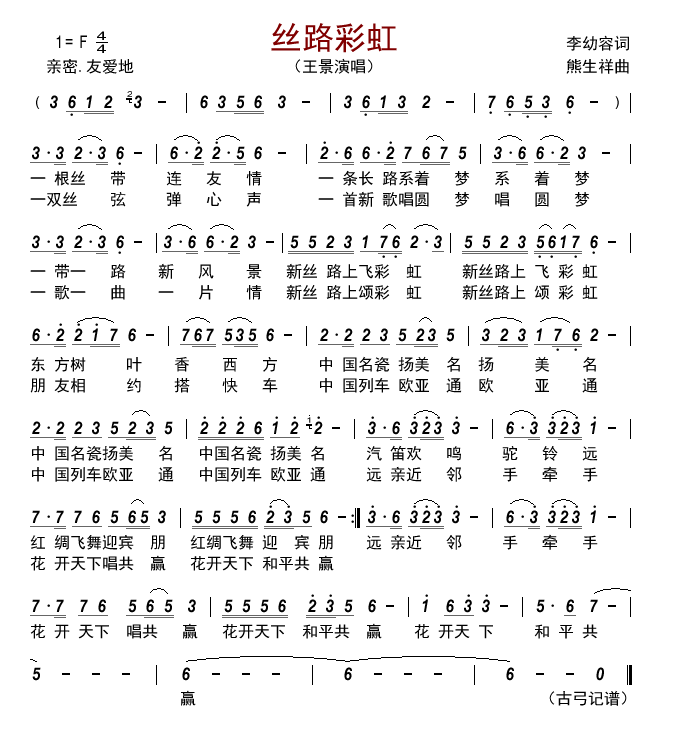 丝路彩虹
1= F 4/4
李幼容词
亲密.友爱地
（王景演唱）
熊生祥曲
( 3 6 1 2 2 3 – | 6 3 5 6 3 – | 3 6 1 3 2 – | 7 6 5 3 6 – ) |
3·3 2·3 6 – | 6·2 2·5 6 – | 2·6 6·2 7 6 7 5 | 3·6 6·2 3 – |
一 根丝 带 连 友 情 一 条长 路系着 梦 系 着 梦
一双丝 弦 弹 心 声 一 首新 歌唱圆 梦 唱 圆 梦
3·3 2·3 6 – | 3·6 6·2 3 – | 5 5 2 3 1 7 6 2·3 | 5 5 2 3 5 6 1 7 6 – |
一 带一 路 新 风 景 新丝 路上飞彩 虹 新丝路上 飞 彩 虹
一 歌一 曲 一 片 情 新丝 路上颂彩 虹 新丝路上 颂 彩 虹
6·2 2 1 7 6 – | 7 6 7 5 3 5 6 – | 2·2 2 3 5 2 3 5 | 3 2 3 1 7 6 2 – |
东 方树 叶 香 西 方 中 国名瓷 扬美 名 扬 美 名
朋 友相 约 搭 快 车 中 国列车 欧亚 通 欧 亚 通
2·2 2 3 5 2 3 5 | 2 2 2 6 1 2 1 2 – | 3·6 3 2 3 3 – | 6·3 3 2 3 1 – |
中 国名瓷扬美 名 中国名瓷 扬美 名 汽 笛欢 鸣 驼 铃 远
中 国列车欧亚 通 中国列车 欧亚 通 远 亲近 邻 手 牵 手
7·7 7 6 5 6 5 3 | 5 5 5 6 2 3 5 6 – :| 3·6 3 2 3 3 – | 6·3 3 2 3 1 – |
红 绸飞舞迎宾 朋 红绸飞舞 迎 宾 朋 远 亲近 邻 手 牵 手
花 开天下唱共 赢 花开天下 和平共 赢
7·7 7 6 5 6 5 3 | 5 5 5 6 2 3 5 6 – | 1 6 3 3 – | 5·6 7 – |
花 开 天下 唱共 赢 花开天下 和平共 赢 花 开天 下 和 平 共
5 – – – | 6 – – – | 6 – – – | 6 – – 0 ||
赢
（古弓记谱）